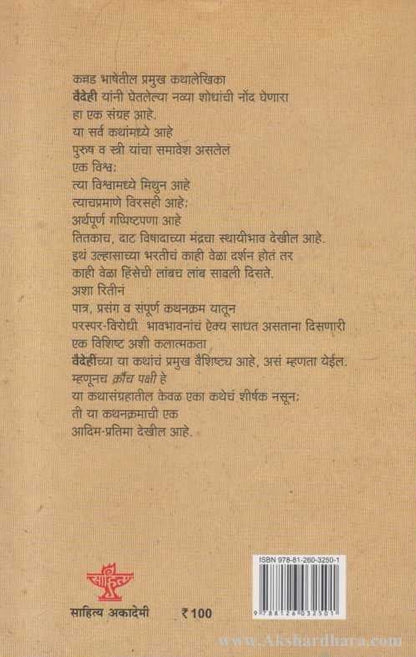 कन्नड भाषेतील प्रमुख कथालेखिका
वैदेही यांनी घेतलेल्या नव्या शोधांची नोंद घेणारा
हा एक संग्रह आहे.
या सर्व कथांमध्ये आहे
पुरुष व स्त्री यांचा समावेश असलेलं
एक विश्व;
त्या विश्वामध्ये मिथुन आहे
त्याचप्रमाणे विरसही आहे;
अर्थपूर्ण गप्पिष्टपणा आहे
तितकाच, दाट विषादाच्या मंद्रचा स्थायीभाव देखील आहे.
इथं उल्हासाच्या भरतीचं काही वेळा दर्शन होतं तर
काही वेळा हिंसेची लांबच लांब सावली दिसते.
अशा रितीनं
पात्र, प्रसंग व संपूर्ण कथनक्रम यातून
परस्पर-विरोधी भावभावनांचं ऐक्य साधत असताना दिसणारी
एक विशिष्ट अशी कलात्मकता
वैदेहींच्या या कथांचं प्रमुख वैशिष्ट्य आहे, असं म्हणता येईल.
म्हणूनच क्रौंच पक्षी हे
या कथासंग्रहातील केवळ एका कथेचं शीर्षक नसून;
ती या कथनक्रमाची एक
आदिम-प्रतिमा देखील आहे.
ISBN 978-81-260-3250-1
9 788126 032501
साहित्य
साहित्य अकादेमी
₹ 100
www.Akshardhara.com